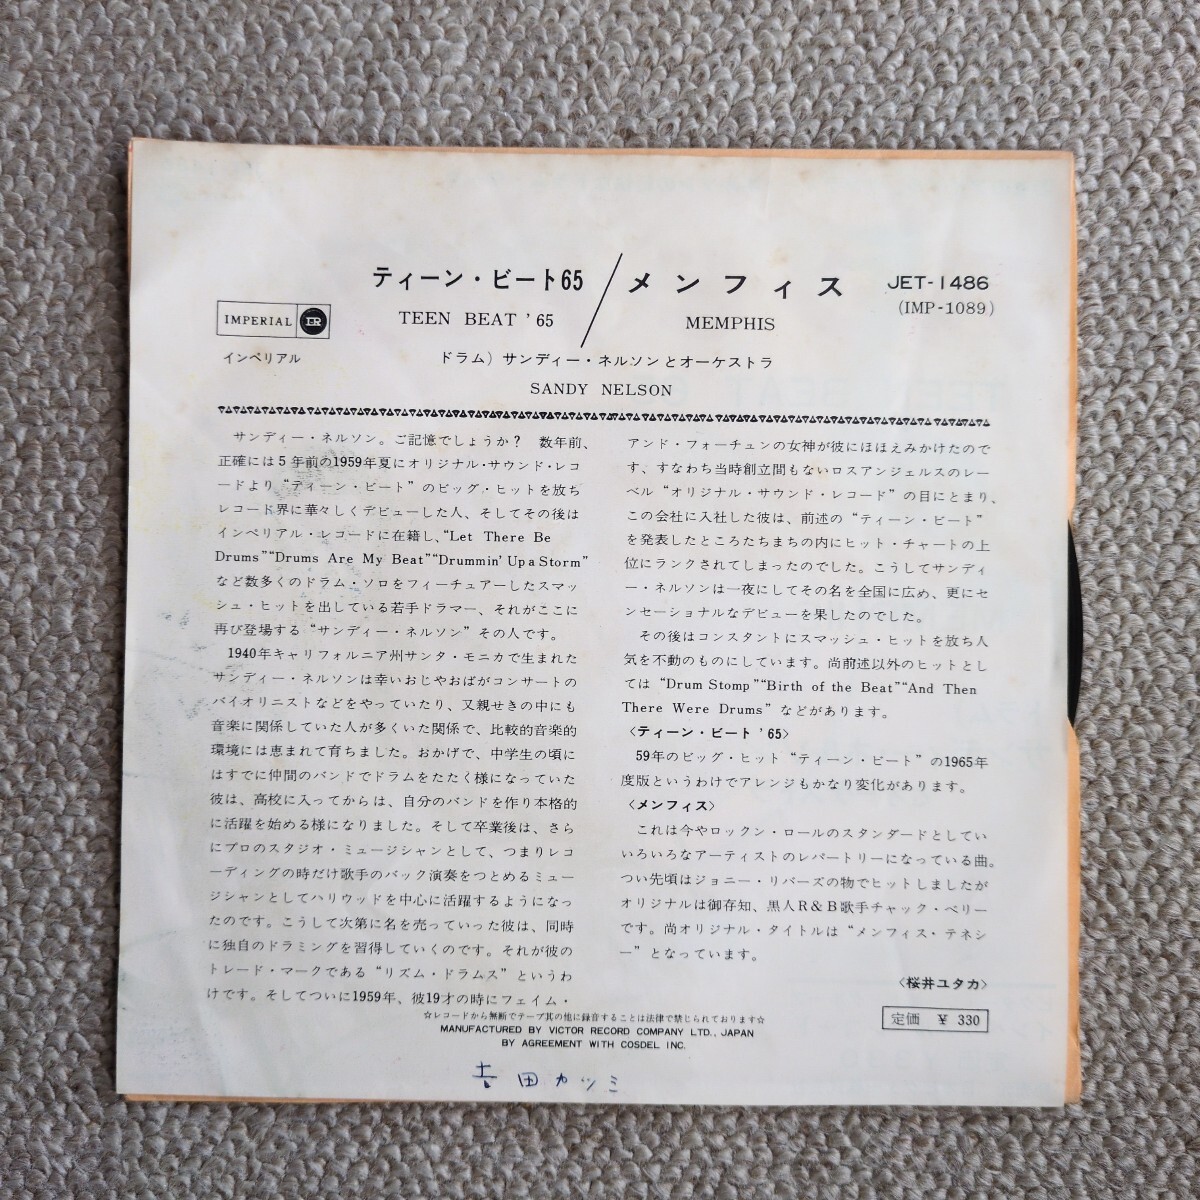 ティーン・ビート65 / メンフィス JET-1486
TEEN BEAT '65 MEMPHIS (IMP-1089)
IMPERIAL IR
インペリアル
ドラム) サンディー・ネルソンとオーケストラ
SANDY NELSON
サンディー・ネルソン。ご記憶でしょうか? 数年前、
正確には5年前の1959年夏にオリジナル・サウンド・レコ
ードより“ティーン・ビート"のビッグ・ヒットを放ち
レコード界に華々しくデビューした人、そしてその後は
インペリアル・レコードに在籍し、“Let There Be
Drums"“Drums Are My Beat"“Drummin' Up a Storm"
など数多くのドラム・ソロをフィーチュアーしたスマッ
シュ・ヒットを出している若手ドラマー、それがここに
再び登場する“サンディー・ネルソン"その人です。
1940年キャリフォルニア州サンタ・モニカで生まれた
サンディー・ネルソンは幸いおじやおばがコンサートの
バイオリニストなどをやっていたり、又親せきの中にも
音楽に関係していた人が多くいた関係で、比較的音楽的
環境には恵まれて育ちました。おかげで、中学生の頃に
はすでに仲間のバンドでドラムをたたく様になっていた
彼は、高校に入ってからは、自分のバンドを作り本格的
に活躍を始める様になりました。そして卒業後は、さら
にプロのスタジオ・ミュージシャンとして、つまりレコ
ーディングの時だけ歌手のバック演奏をつとめるミュー
ジシャンとしてハリウッドを中心に活躍するようになっ
たのです。こうして次第に名を売っていった彼は、同時
に独自のドラミングを習得していくのです。それが彼の
トレード・マークである“リズム・ドラムス"というわ
けです。そしてついに1959年、彼19才の時にフェイム・
アンド・フォーチュンの女神が彼にほほえみかけたので
す、すなわち当時創立間もないロスアンジェルスのレー
ベル“オリジナル・サウンド・レコード"の目にとまり、
この会社に入社した彼は、前述の“ティーン・ビート"
を発表したところたちまちの内にヒット・チャートの上
位にランクされてしまったのでした。こうしてサンディ
ー・ネルソンは一夜にしてその名を全国に広め、更にセ
ンセーショナルなデビューを果したのでした。
その後はコンスタントにスマッシュ・ヒットを放ち人
気を不動のものにしています。尚前述以外のヒットとし
ては“Drum Stomp"“Birth of the Beat"“And Then
There Were Drums"などがあります。
〈ティーン・ビート'65〉
59年のビッグ・ヒット“ティーン・ビート"の1965年
度版というわけでアレンジもかなり変化があります。
〈メンフィス〉
これは今やロックン・ロールのスタンダードとしてい
いろいろなアーティストのレパートリーになっている曲。
つい先頃はジョニー・リバーズの物でヒットしましたが
オリジナルは御存知、黒人R&B歌手チャック・ベリー
です。尚オリジナル・タイトルは“メンフィス・テネシ
ー"となっています。
〈桜井ユタカ〉
☆レコードから無断でテープ其の他に録音することは法律で禁じられております☆
MANUFACTURED BY VICTOR RECORD COMPANY LTD., JAPAN
BY AGREEMENT WITH COSDEL INC.
定価 ¥ 330
吉田カツミ